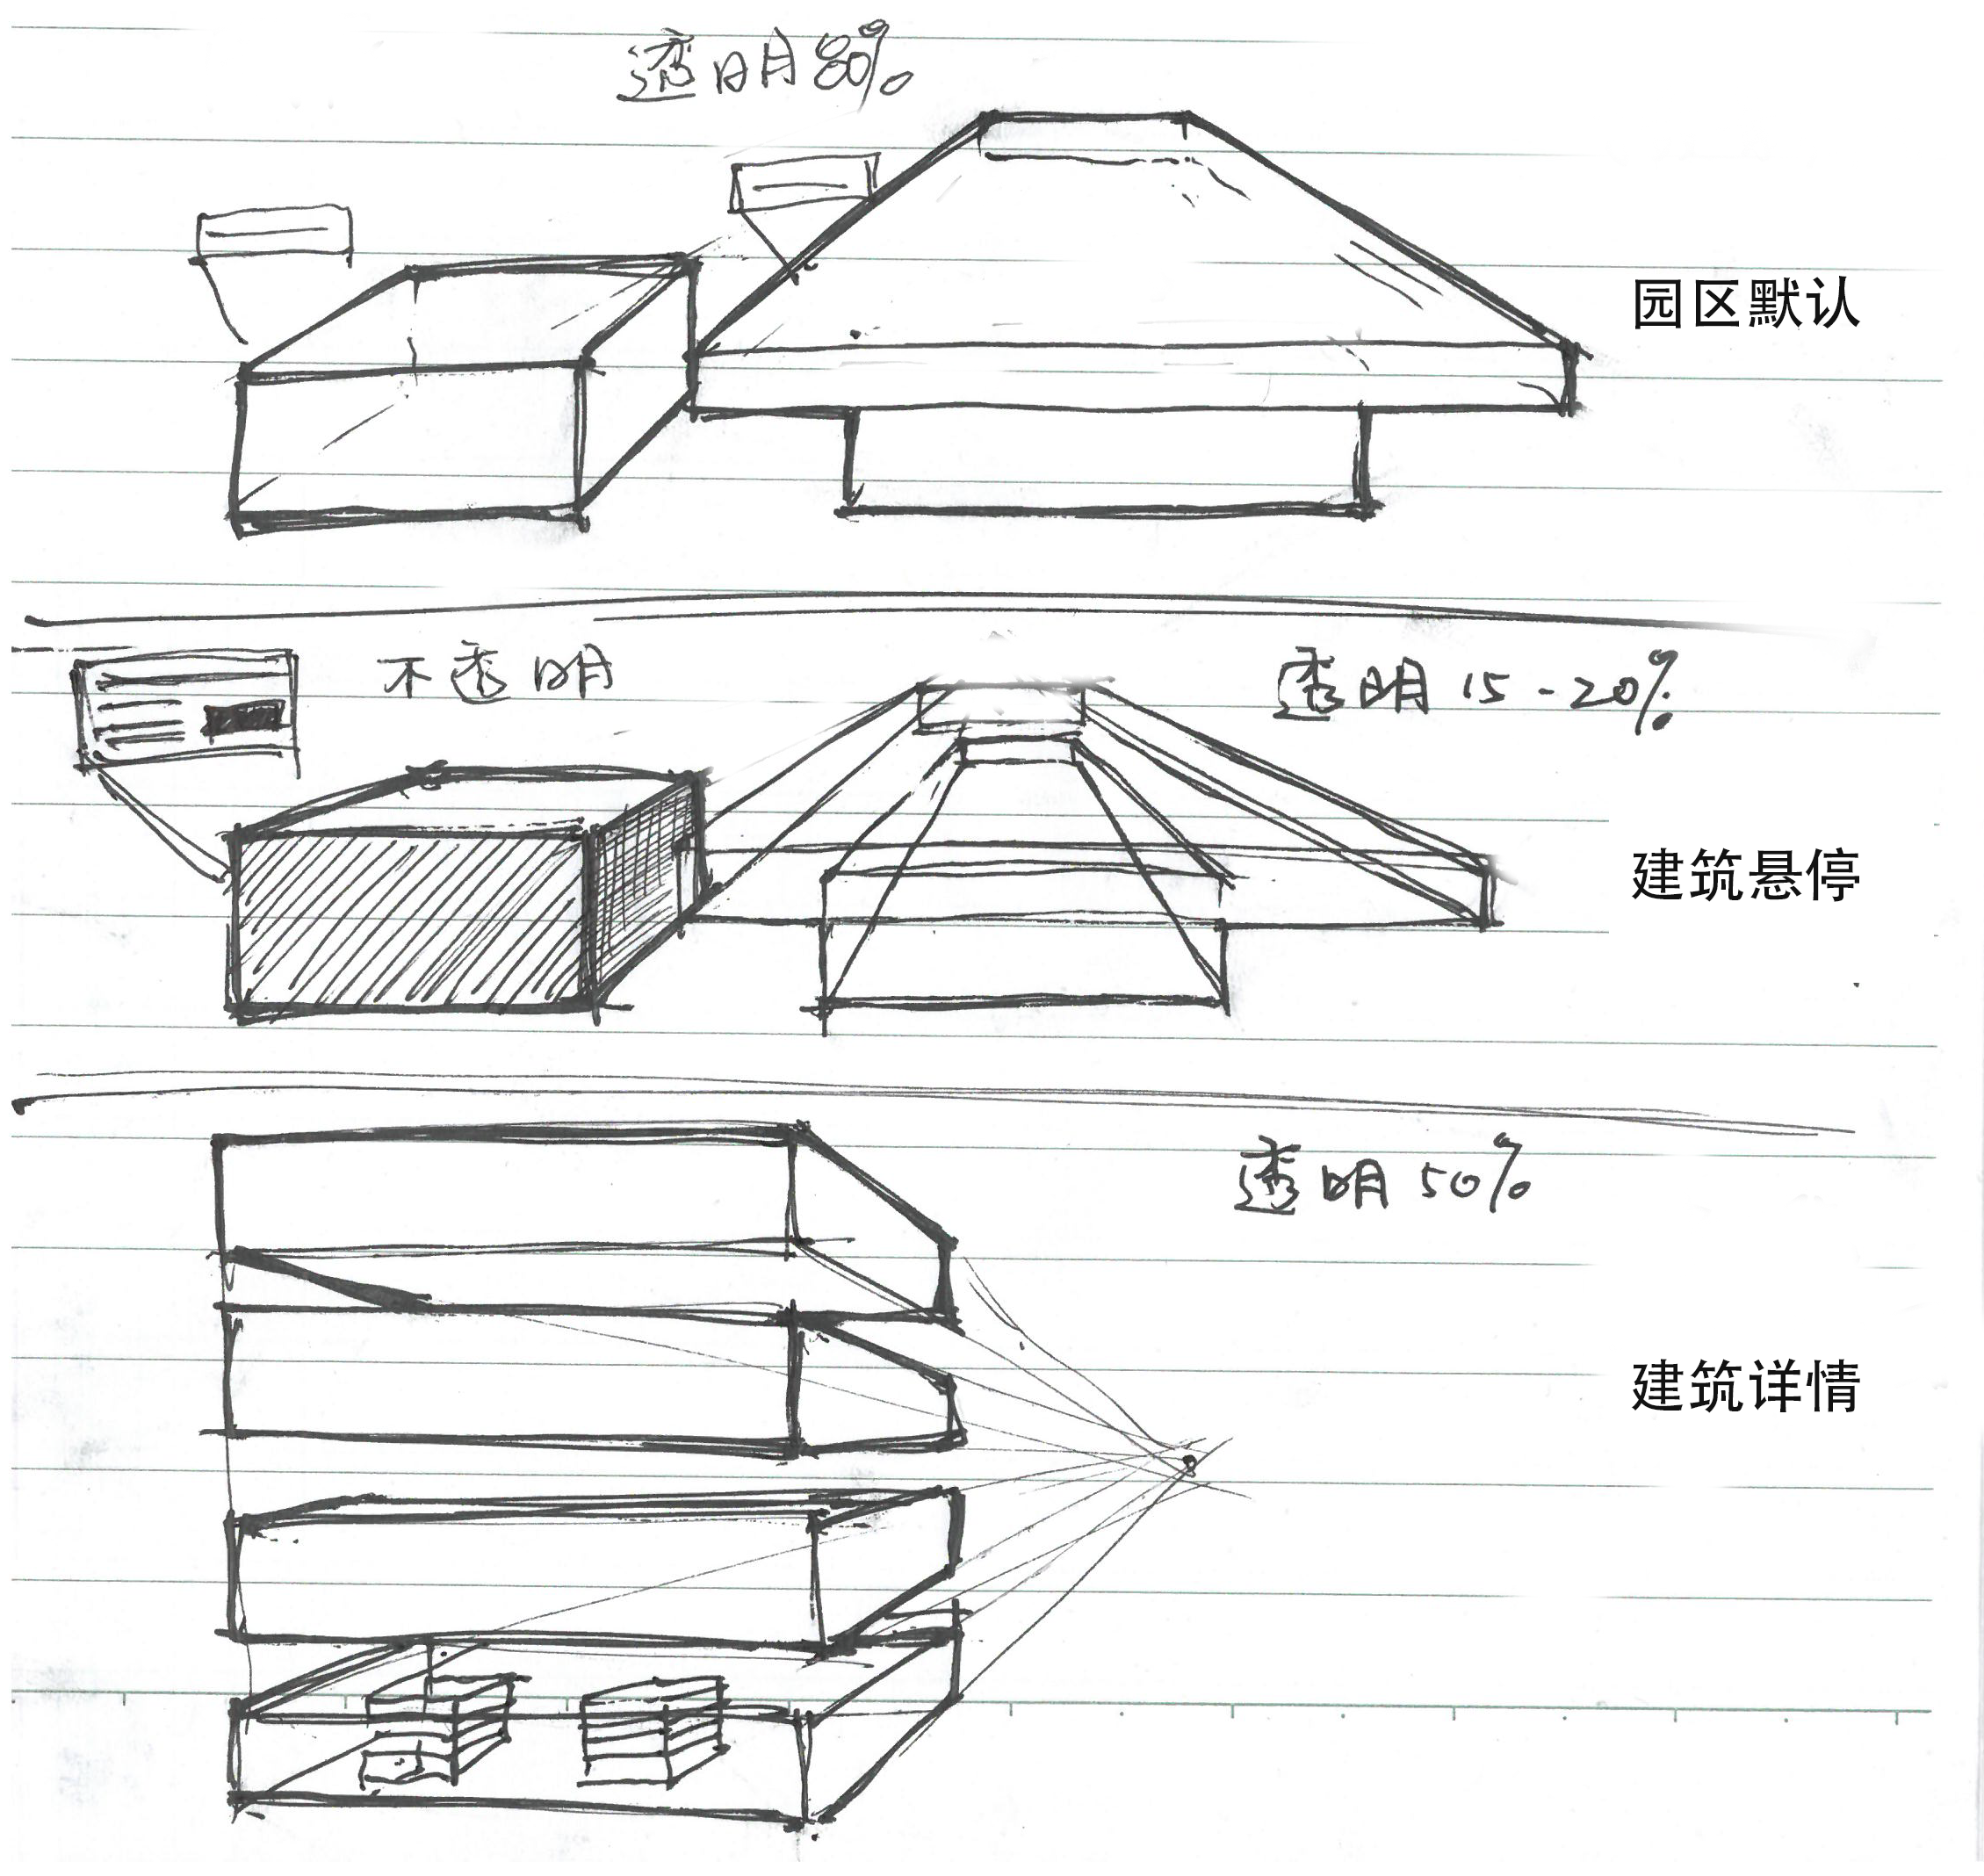 透明80%
园区默认
不透明
透明15-20%
建筑悬停
透明50%
建筑详情